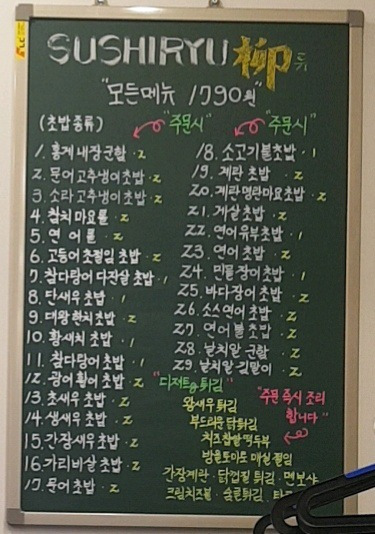 SUSHIRYU 柳
"모든메뉴 1790원"
(초밥종류) "주문시" "주문시"
1. 홍게내장군함 · 2
2. 문어고추냉이초밥 · 2
3. 소라고추냉이초밥 · 2
4. 참치마요롤 · 2
5. 연어롤 · 2
6. 고등어초절임 초밥 · 2
7. 참다랑어다진살초밥 · 1
8. 단새우초밥 · 1
9. 대왕한치초밥 · 2
10. 황새치 초밥 · 1
11. 참다랑어초밥 · 1
12. 광어활어초밥 · 2
13. 초새우초밥 · 2
14. 생새우초밥 · 2
15. 간장새우초밥 · 2
16. 가리비살초밥 · 2
17. 문어초밥 · 2
18. 소고기불초밥 · 1
19. 계란 초밥 · 2
20. 계란명란마요초밥 · 2
21. 게살초밥 · 2
22. 연어유부초밥 · 1
23. 연어초밥 · 2
24. 민물장어초밥 · 1
25. 바다장어초밥 · 2
26. 소스연어 초밥 · 2
27. 연어불초밥 · 2
28. 날치알 군함 · 2
29. 날치알 김말이 · 2
"디저트&튀김"
"주문 즉시 조리
합니다"
왕새우튀김
부드러운 닭튀김
치즈찹쌀떡두부
방울토마토 매실절임
간장계란 · 닭껍질 튀김 · 멘보샤
크림치즈볼 · 슈룹튀김